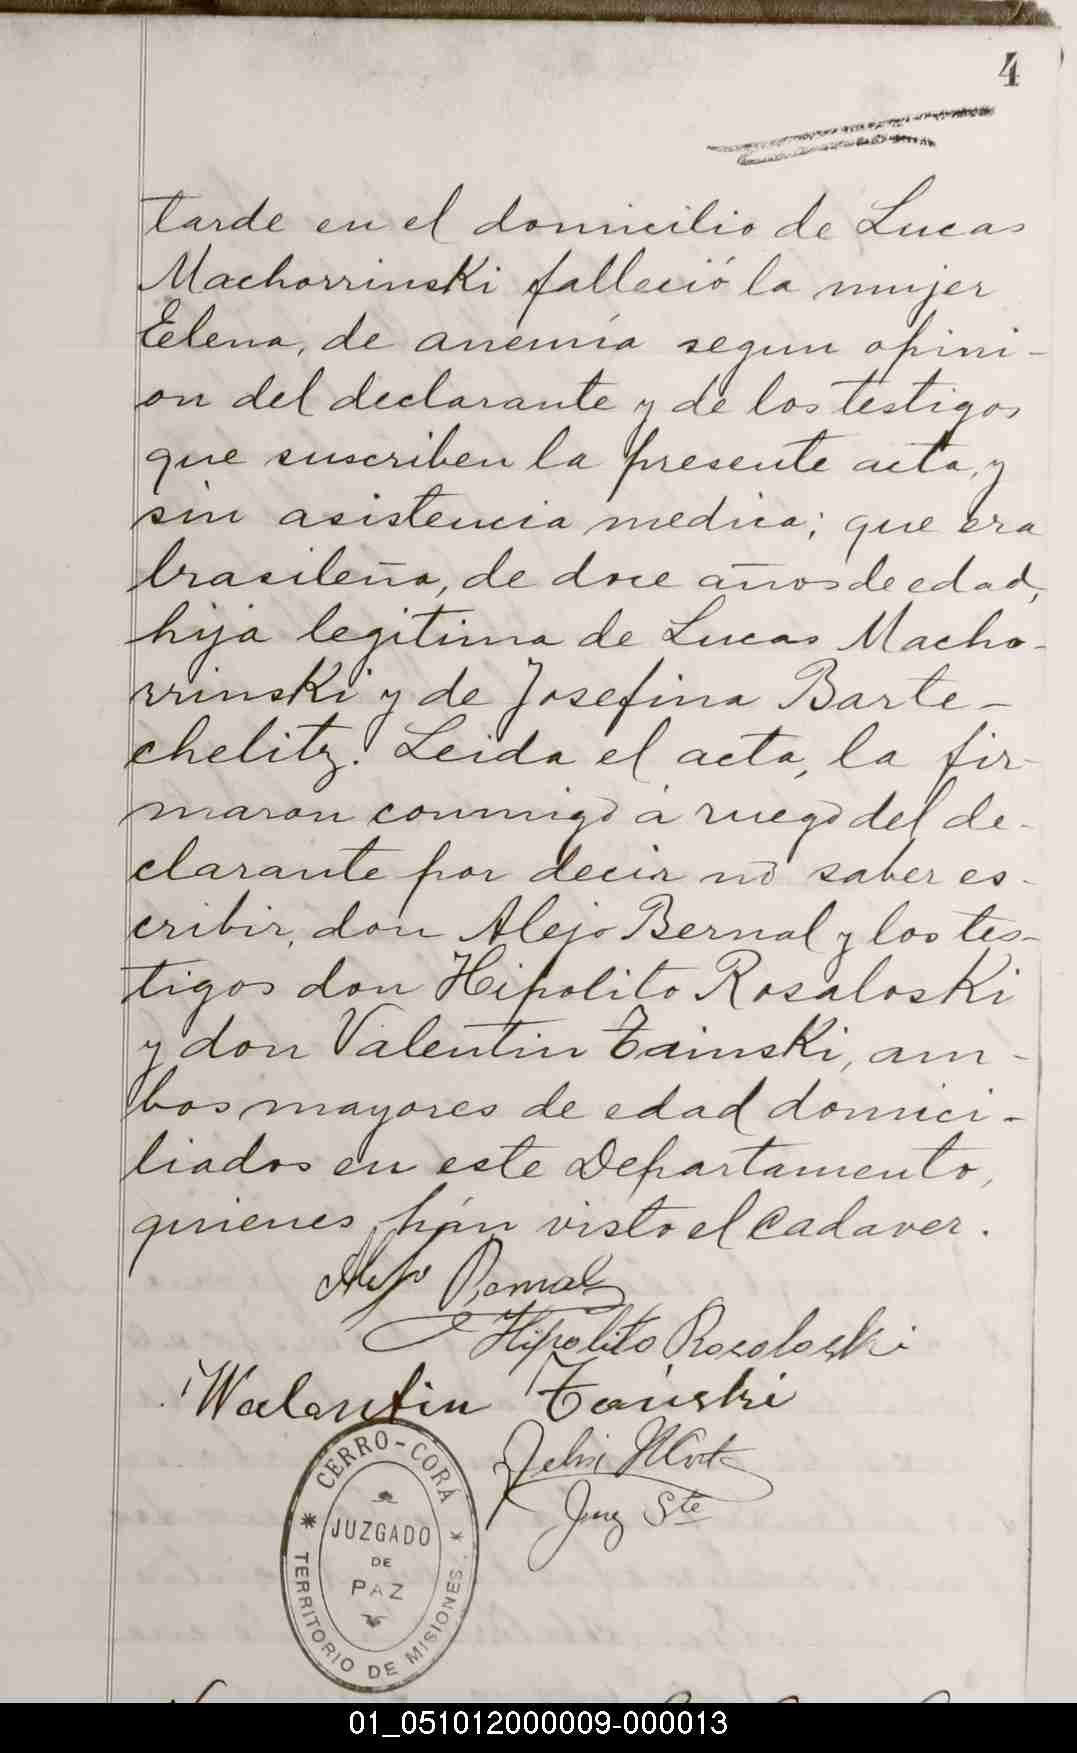 4
tarde en el domicilio de Lucas
Machorrinski falleció la mujer
Eelena, de anemia segun opini-
on del declarante y de los testigos
que suscriben la presente acta, y
sin asistencia medica; que era
brasileña, de doce años de edad,
hija legitima de Lucas Macho-
rrinski y de Josefina Barte-
chelitz. Leida el acta, la fir-
maron conmigo á ruego del de-
clarante por decir no saber es-
cribir, don Alejo Bernal y los tes-
tigos don Hipolito Rosaloski
y don Valentin Tainski, am-
bos mayores de edad domici-
liados en este Departamento,
quienes hán visto el cadaver.
Alejo Bernal
Hipolito Rosaloski
Walantin Tainski
Juez Ste
CERRO-CORÁ
JUZGADO
DE
PAZ
TERRITORIO DE MISIONES.
01_051012000009-000013